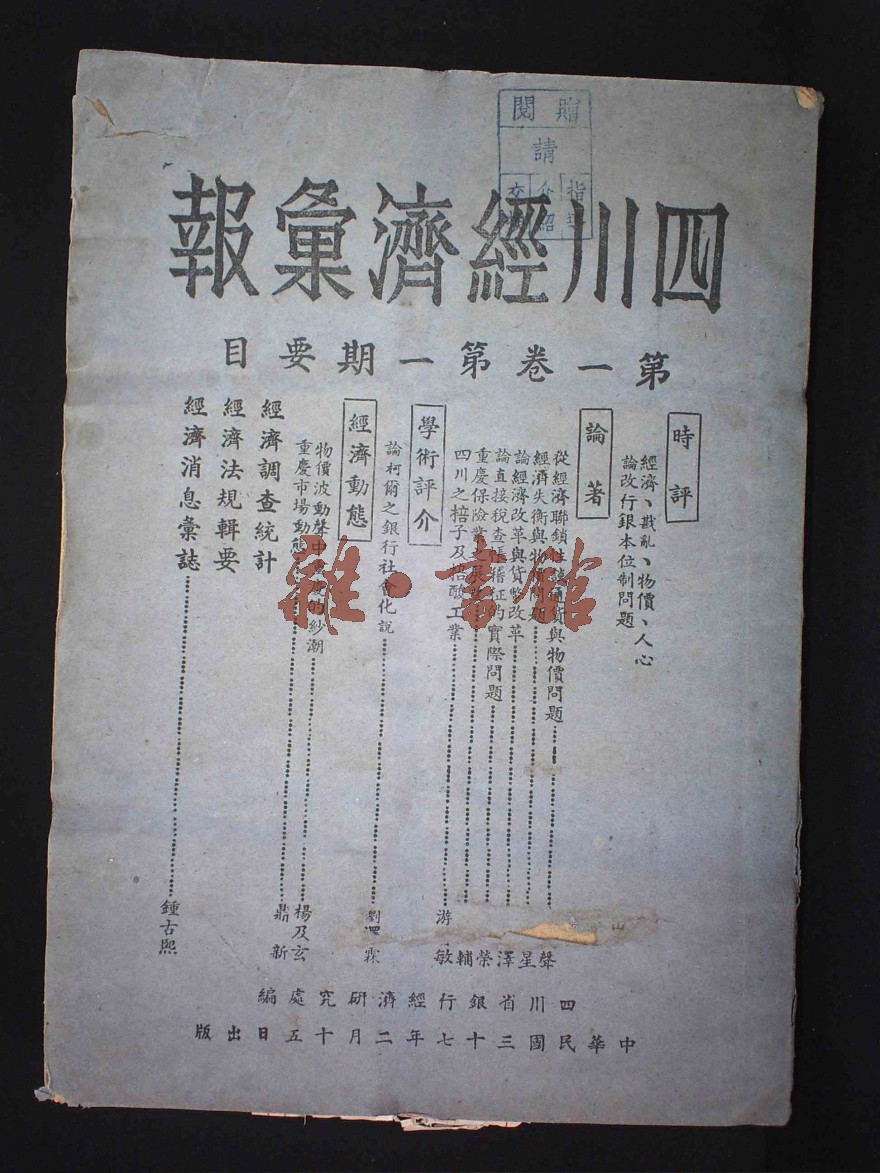 贈閱
請
指
介紹
四川經濟彙報
第一卷第一期要目
時評
經濟、戡亂、物價、人心
論改行銀本位制問題
論著
從經濟聯鎖性 通貨與物價問題
經濟失衡與物價問題
論經濟改革與貨幣改革
論直接稅查帳稽征的實際問題
重慶保險業之展
四川之棓子及棓酸工業
聲
星
澤
榮
輔
游 敏
學術評介
論柯爾之銀行社會化說
劉 霖
經濟動態
物價波動聲中重慶的鈔潮
楊及玄
重慶市場動態
鼎新
經濟調查統計
經濟法規輯要
經濟消息彙誌
鍾古熙
四川省銀行經濟研究處編
中華民國三十七年二月十五日出版
雜·書館